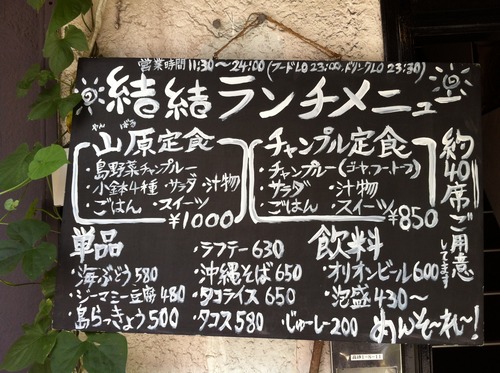 営業時間 11:30〜24:00 (フードLO 23:00, ドリンクLO 23:30)
結結ランチメニュー
やん ばる
山原定食
・島野菜チャンプルー
・小鉢4種・サラダ・汁物
・ごはん ・スイーツ
¥1000
チャンプル定食
・チャンプルー(ゴーヤ、フー、トーフ)
・サラダ ・汁物
・ごはん ・スイーツ
¥850
約40席ご用意
してます
単品
・海ぶどう580
・ジーマミー豆腐480
・島らっきょう500
・ラフテー630
・沖縄そば650
・タコライス650
・タコス580
・じゅーしー200
飲料
・オリオンビール600
・泡盛430〜
めんそ〜れ〜!